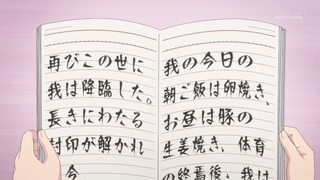 再びこの世に
我は降臨した。
長きにわたる
封印が解かれ
今
我の今日の
朝ご飯は卵焼き、
お昼は豚の
生姜焼き、体育
の終焉後、我は